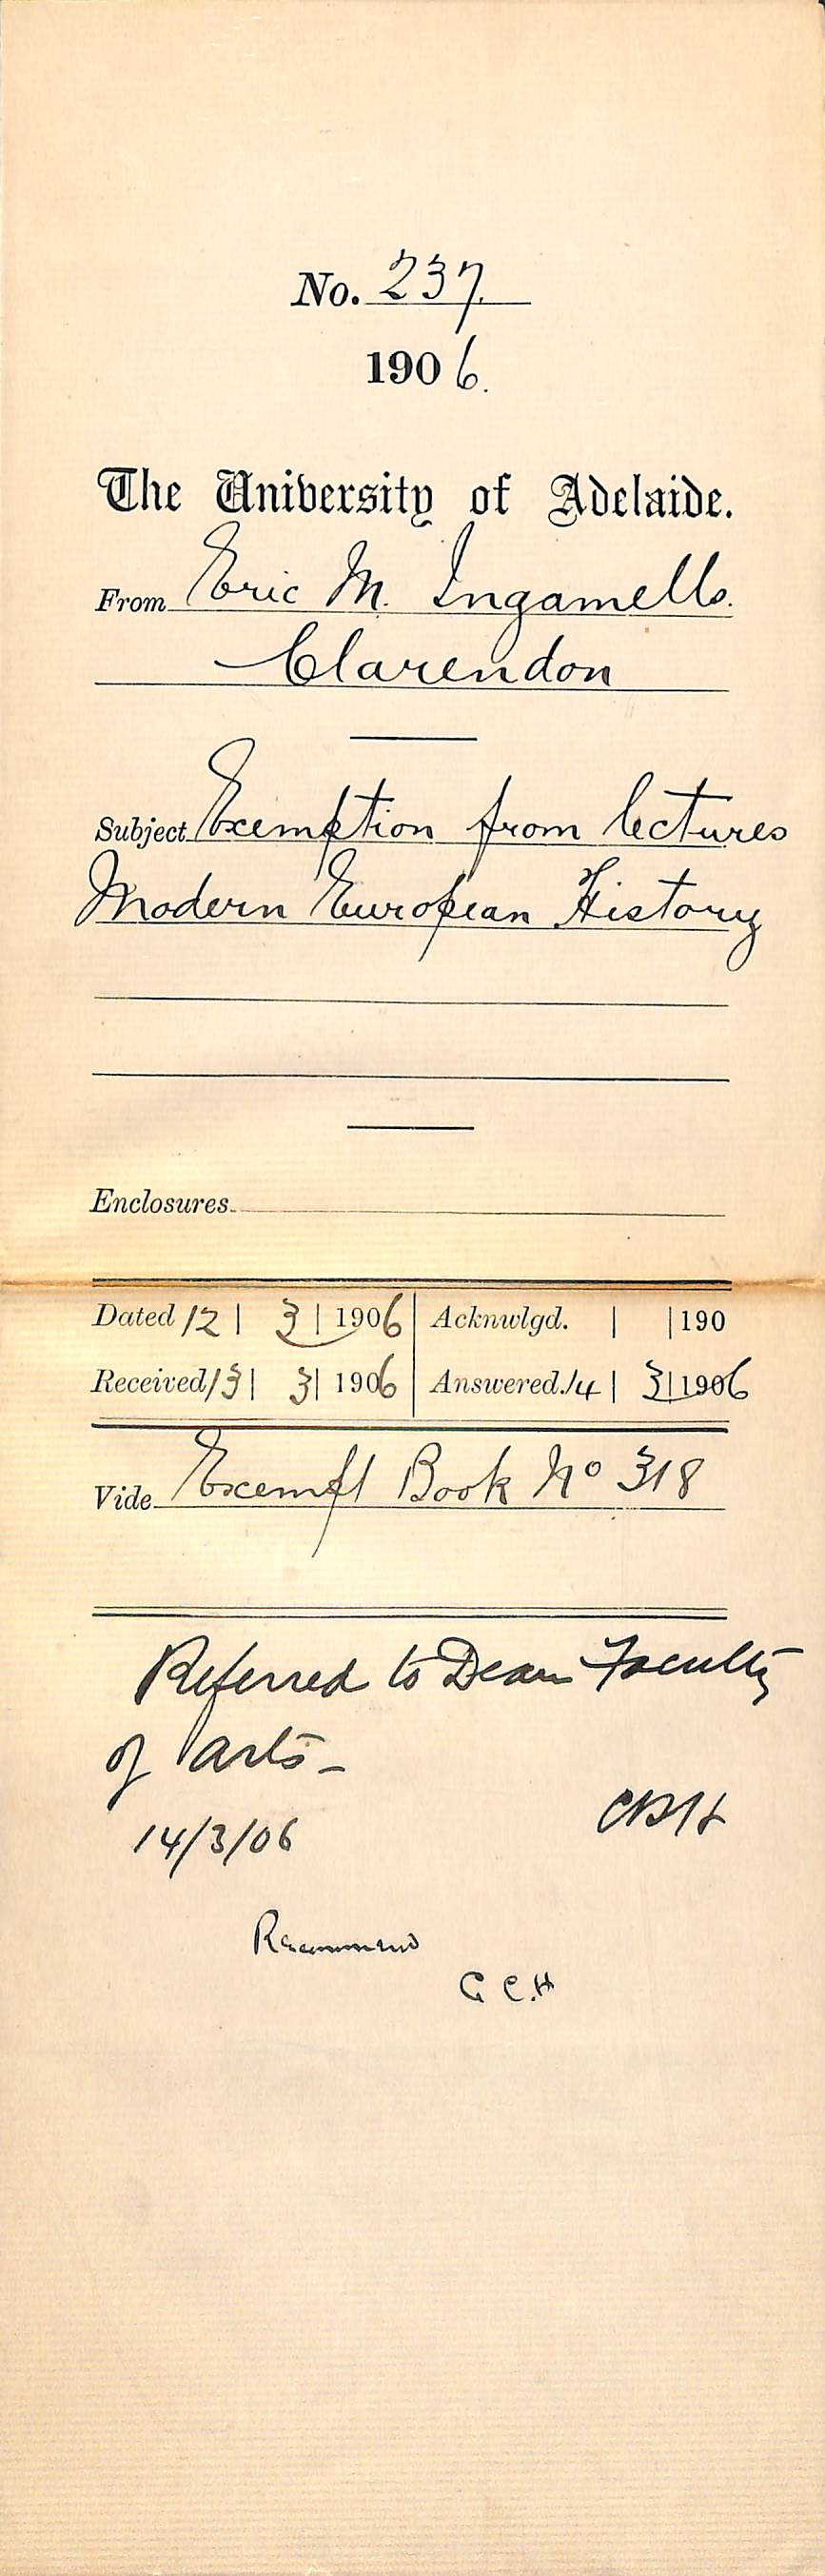 No. 237.
1906.
The University of Adelaide.
From Eric M. Ingamells.
Clarendon
Subject Exemption from lectures
Modern European History
Enclosures
Dated 12 | 3 | 1906 Acknwlgd. | | 190
Received 13 | 3 | 1906 Answered. 14 | 3 | 1906
Vide Exempt Book No 318
Referred to Dean Faculty
of Arts -
14/3/06
Recommend
G C.H